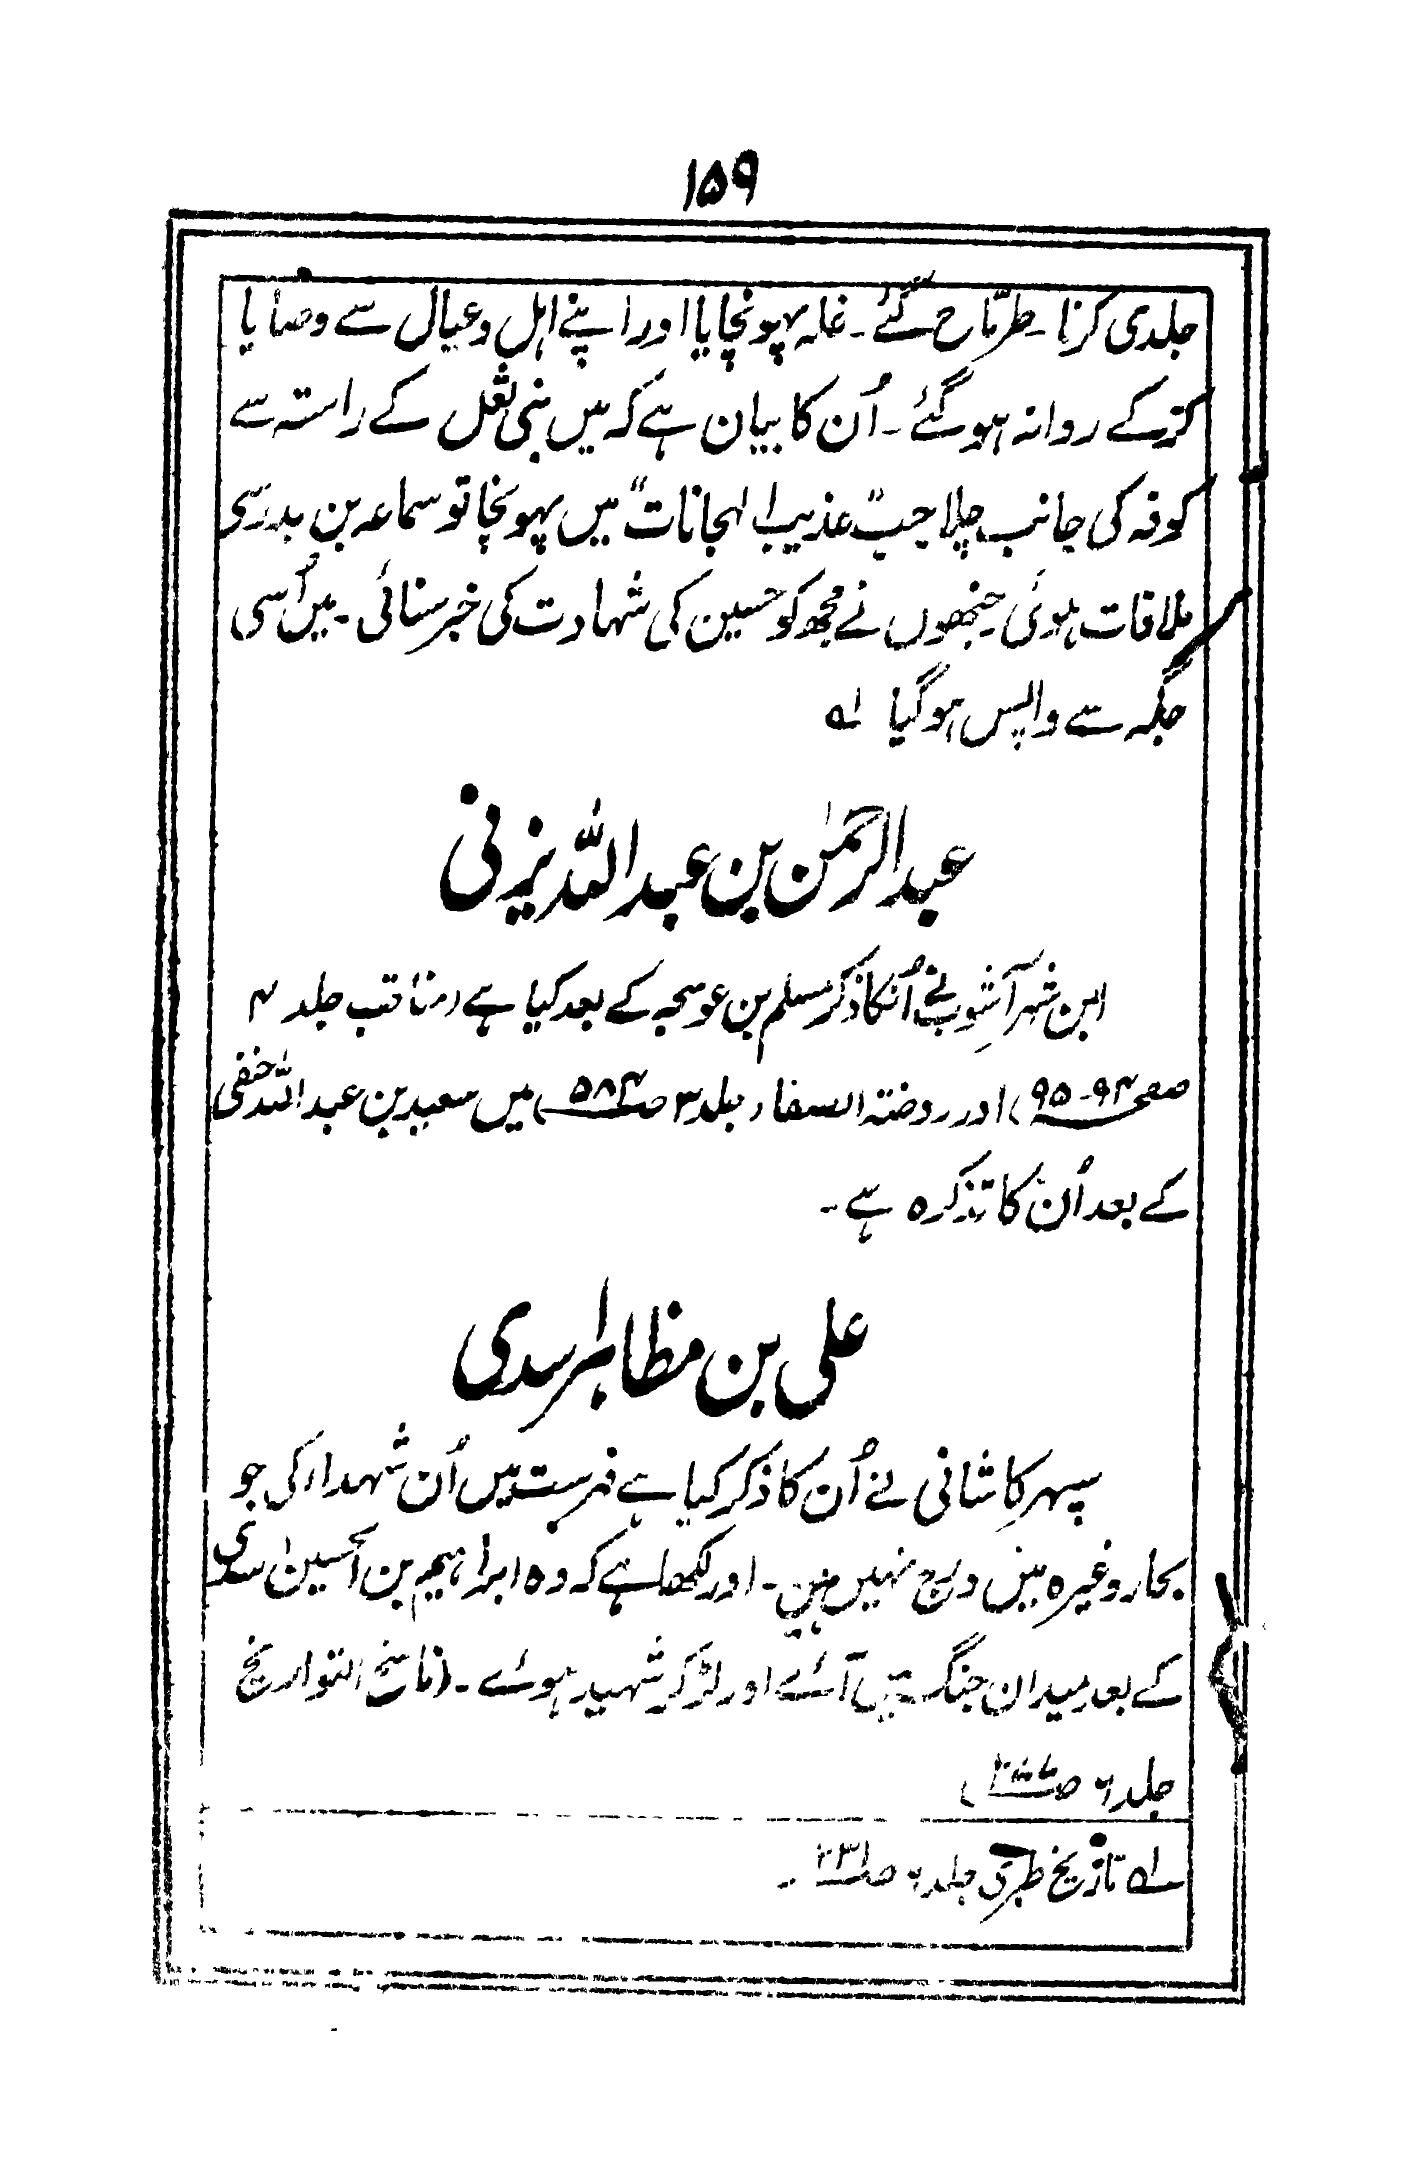 ۱۵۹
جلدی کرنا۔ طرِمّاح گئے۔ غلہ پہونچایا اور اپنے اہل و عیال سے وصایا
کرکے روانہ ہو گئے۔ اُن کا بیان ہے کہ میں بنی ثعل کے راستہ سے
کوفہ کی جانب چلا جب ”عذیب الہجانات“ میں پہونچا تو سماعہ بن بدر سے
ملاقات ہوئی جنھوں نے مجھ کو حسین کی شہادت کی خبر سنائی۔ میں اُسی
جگہ سے واپس ہو گیا لہ
عبد الرحمٰن بن عبد اللہ یزنی
ابن شہر آشوب نے اُنکا ذکر مسلم بن عوسجہ کے بعد کیا ہے (مناقب جلد ۴
صفحہ ۹۴۔۹۵) اور روضتہ الصفاء جلد ۳ ص ۵۸۴ میں سعید بن عبد اللہ حنفی
کے بعد اُن کا تذکرہ ہے۔
علی بن مظاہر اسدی
سپہر کاشانی نے اُن کا ذکر کیا ہے فہرست میں اُن شہداء کی جو
بحار وغیرہ میں درج نہیں ہیں۔ اور لکھا ہے کہ وہ ابراہیم بن الحسین اسدی
کے بعد میدان جنگ میں آئے اور لڑ کر شہید ہوئے۔ (ناسخ التواریخ
جلد ۶ ص)
لہ تاریخ طبری جلد ۶ ص ۲۳۱ ۔